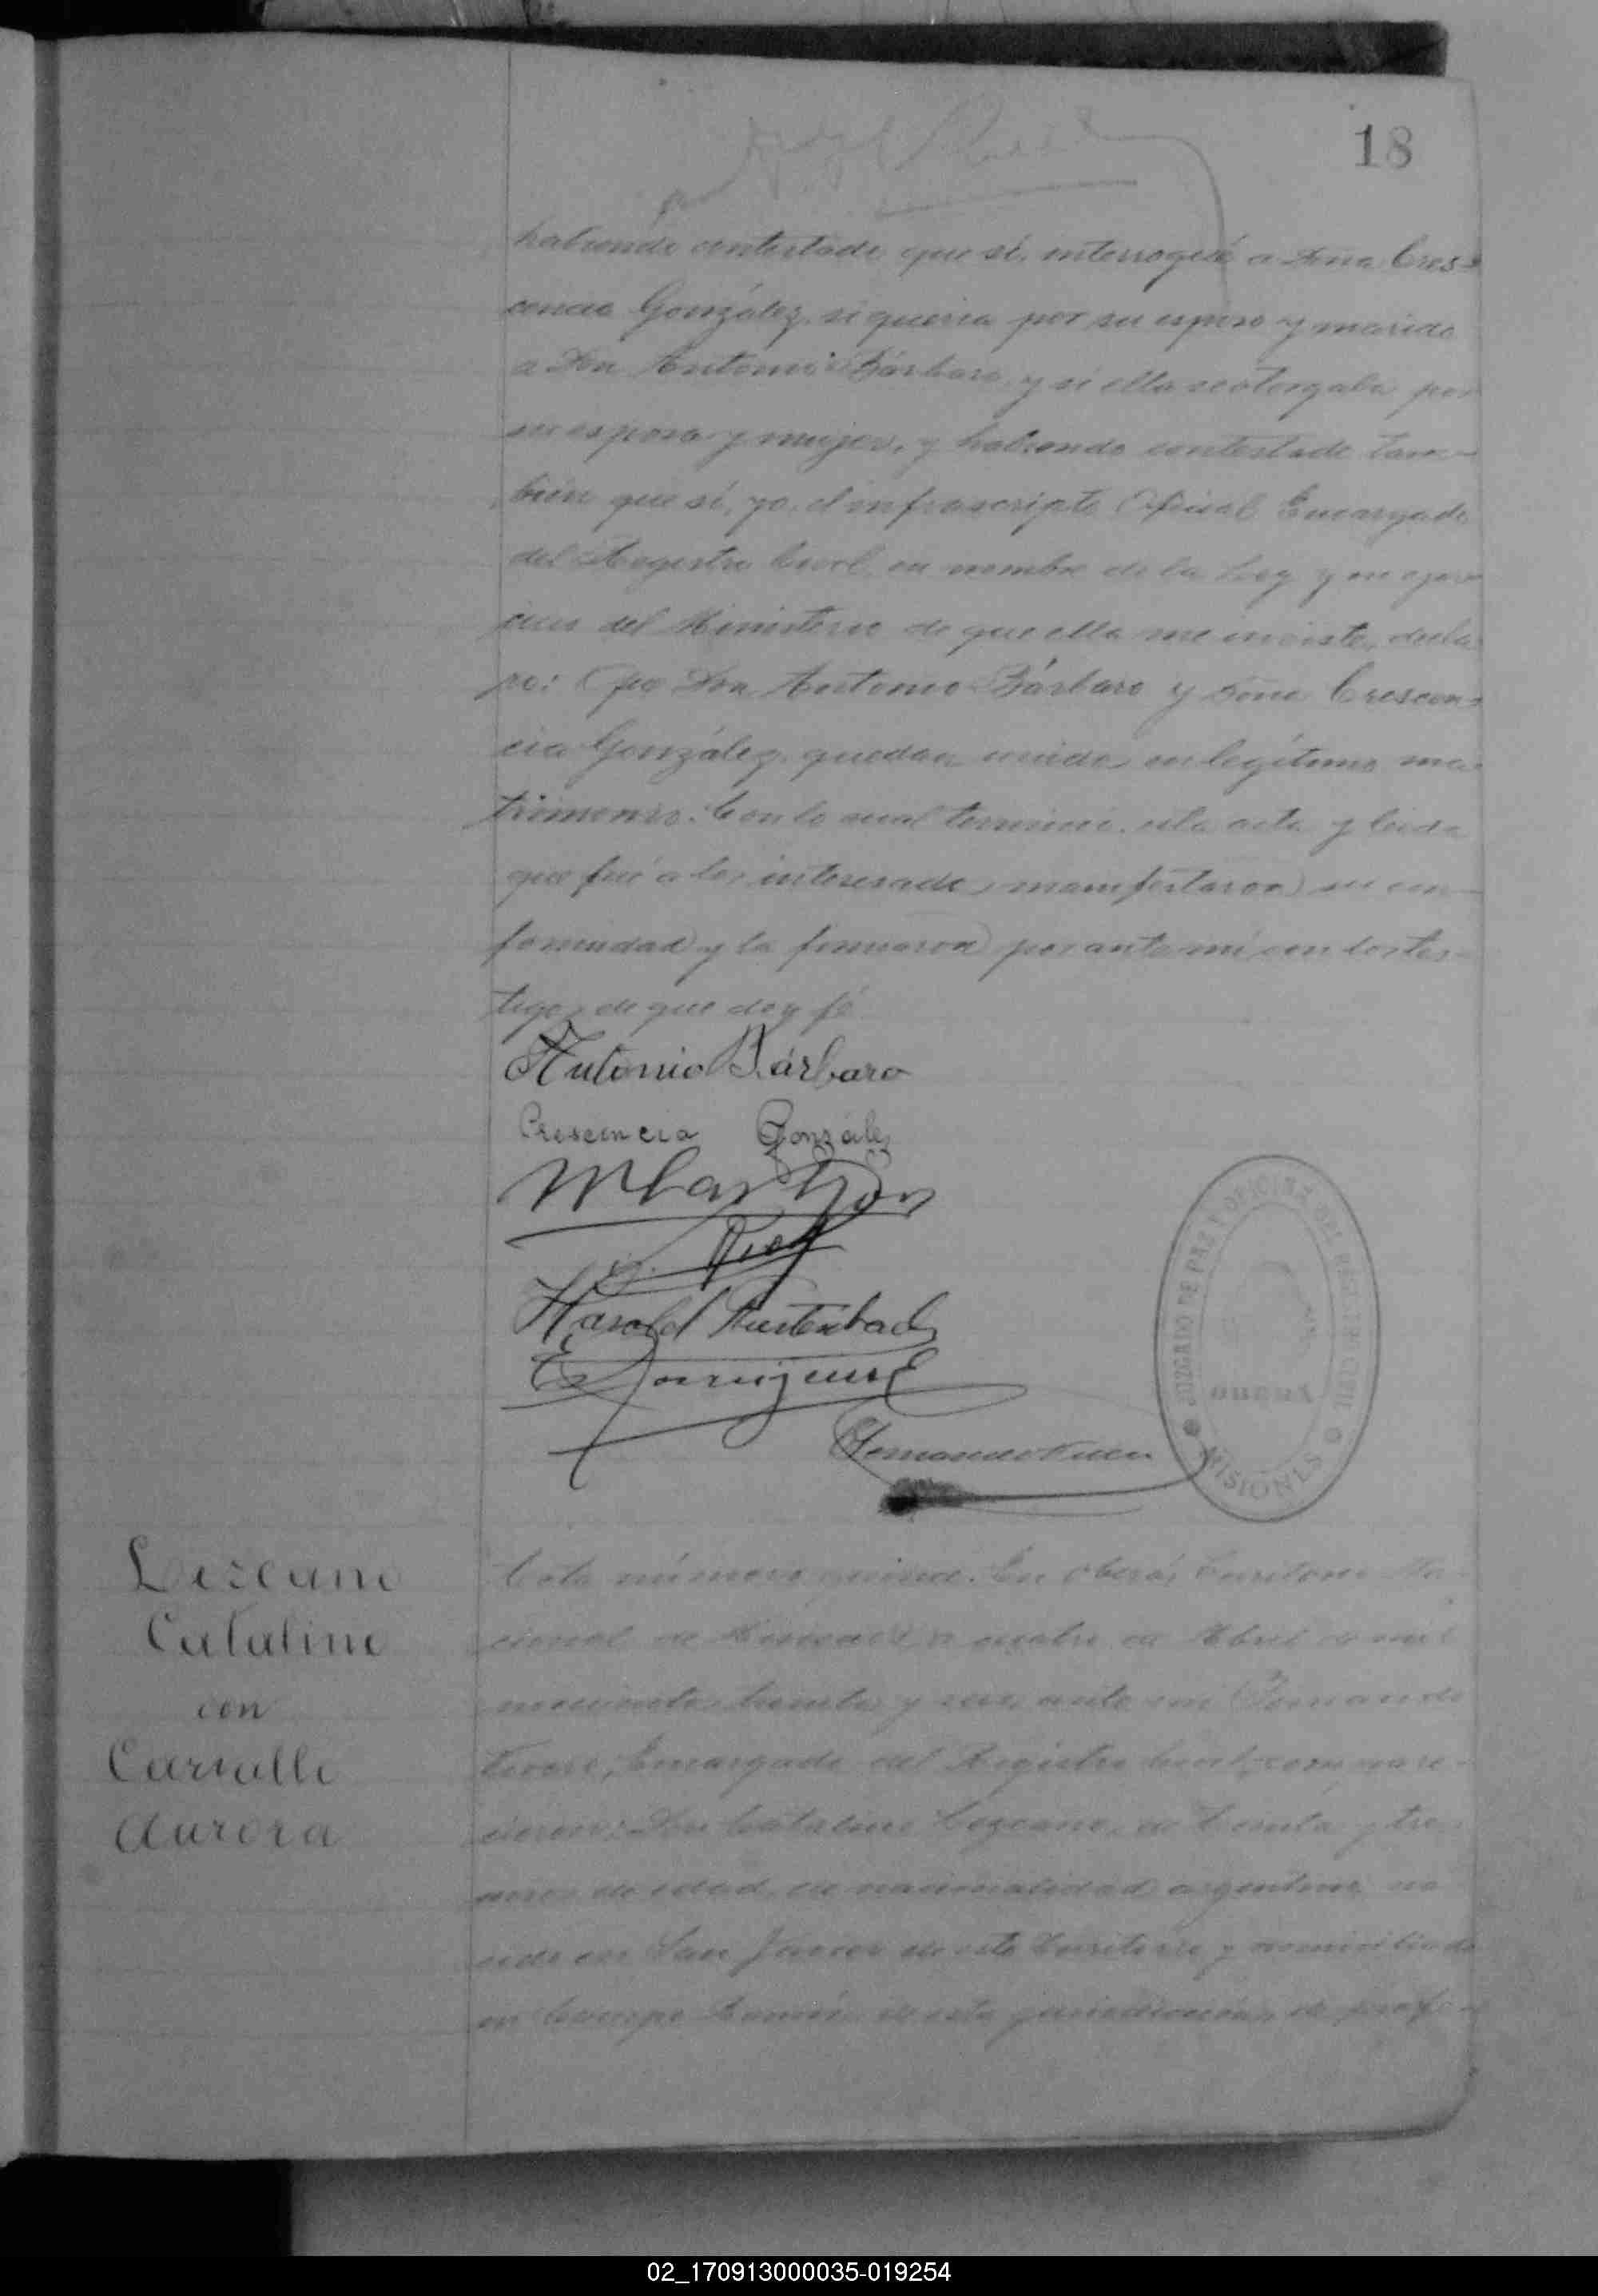 18
habiendo contestado que sí, interrogué a Doña Cres-
cencia González, si quería por su esposo y marido
a Don Antonio Bárbaro y si ella se otorgaba por
su esposa y mujer, y habiendo contestado tam-
bién que sí, yo, el infrascripto Oficial Encargado
del Registro Civil, en nombre de la Ley y en ejer
cicio del Ministerio de que ella me inviste, decla
ro: Que Don Antonio Bárbaro y Doña Crescen-
cia González, quedan unidos en legítimo ma
trimonio. Con lo cual terminé esta acta y leida
que fué a los interesados, manifestaron su con-
formidad y la firmaron por ante mí con los tes-
tigos de que doy fé
Antonio Bárbaro
Crescencia González
Harold
JUZGADO DE PAZ Y OFICINA DEL REGISTRO CIVIL
MISIONES
Lezcano
Catalino
con
Carvallo
Aurora
Acta número quince. En Oberá, Territorio Na-
cional de Misiones, a cuatro de Abril de mil
novecientos treinta y seis, ante mí Fernando
Encargado del Registro Civil, compare-
cieron: Don Catalino Lezcano, de treinta y tres
años de edad, de nacionalidad argentino, na
cido en San Javier de este Territorio y domiciliado
en Campo Ramón de esta jurisdicción, de profe-
02_170913000035-019254